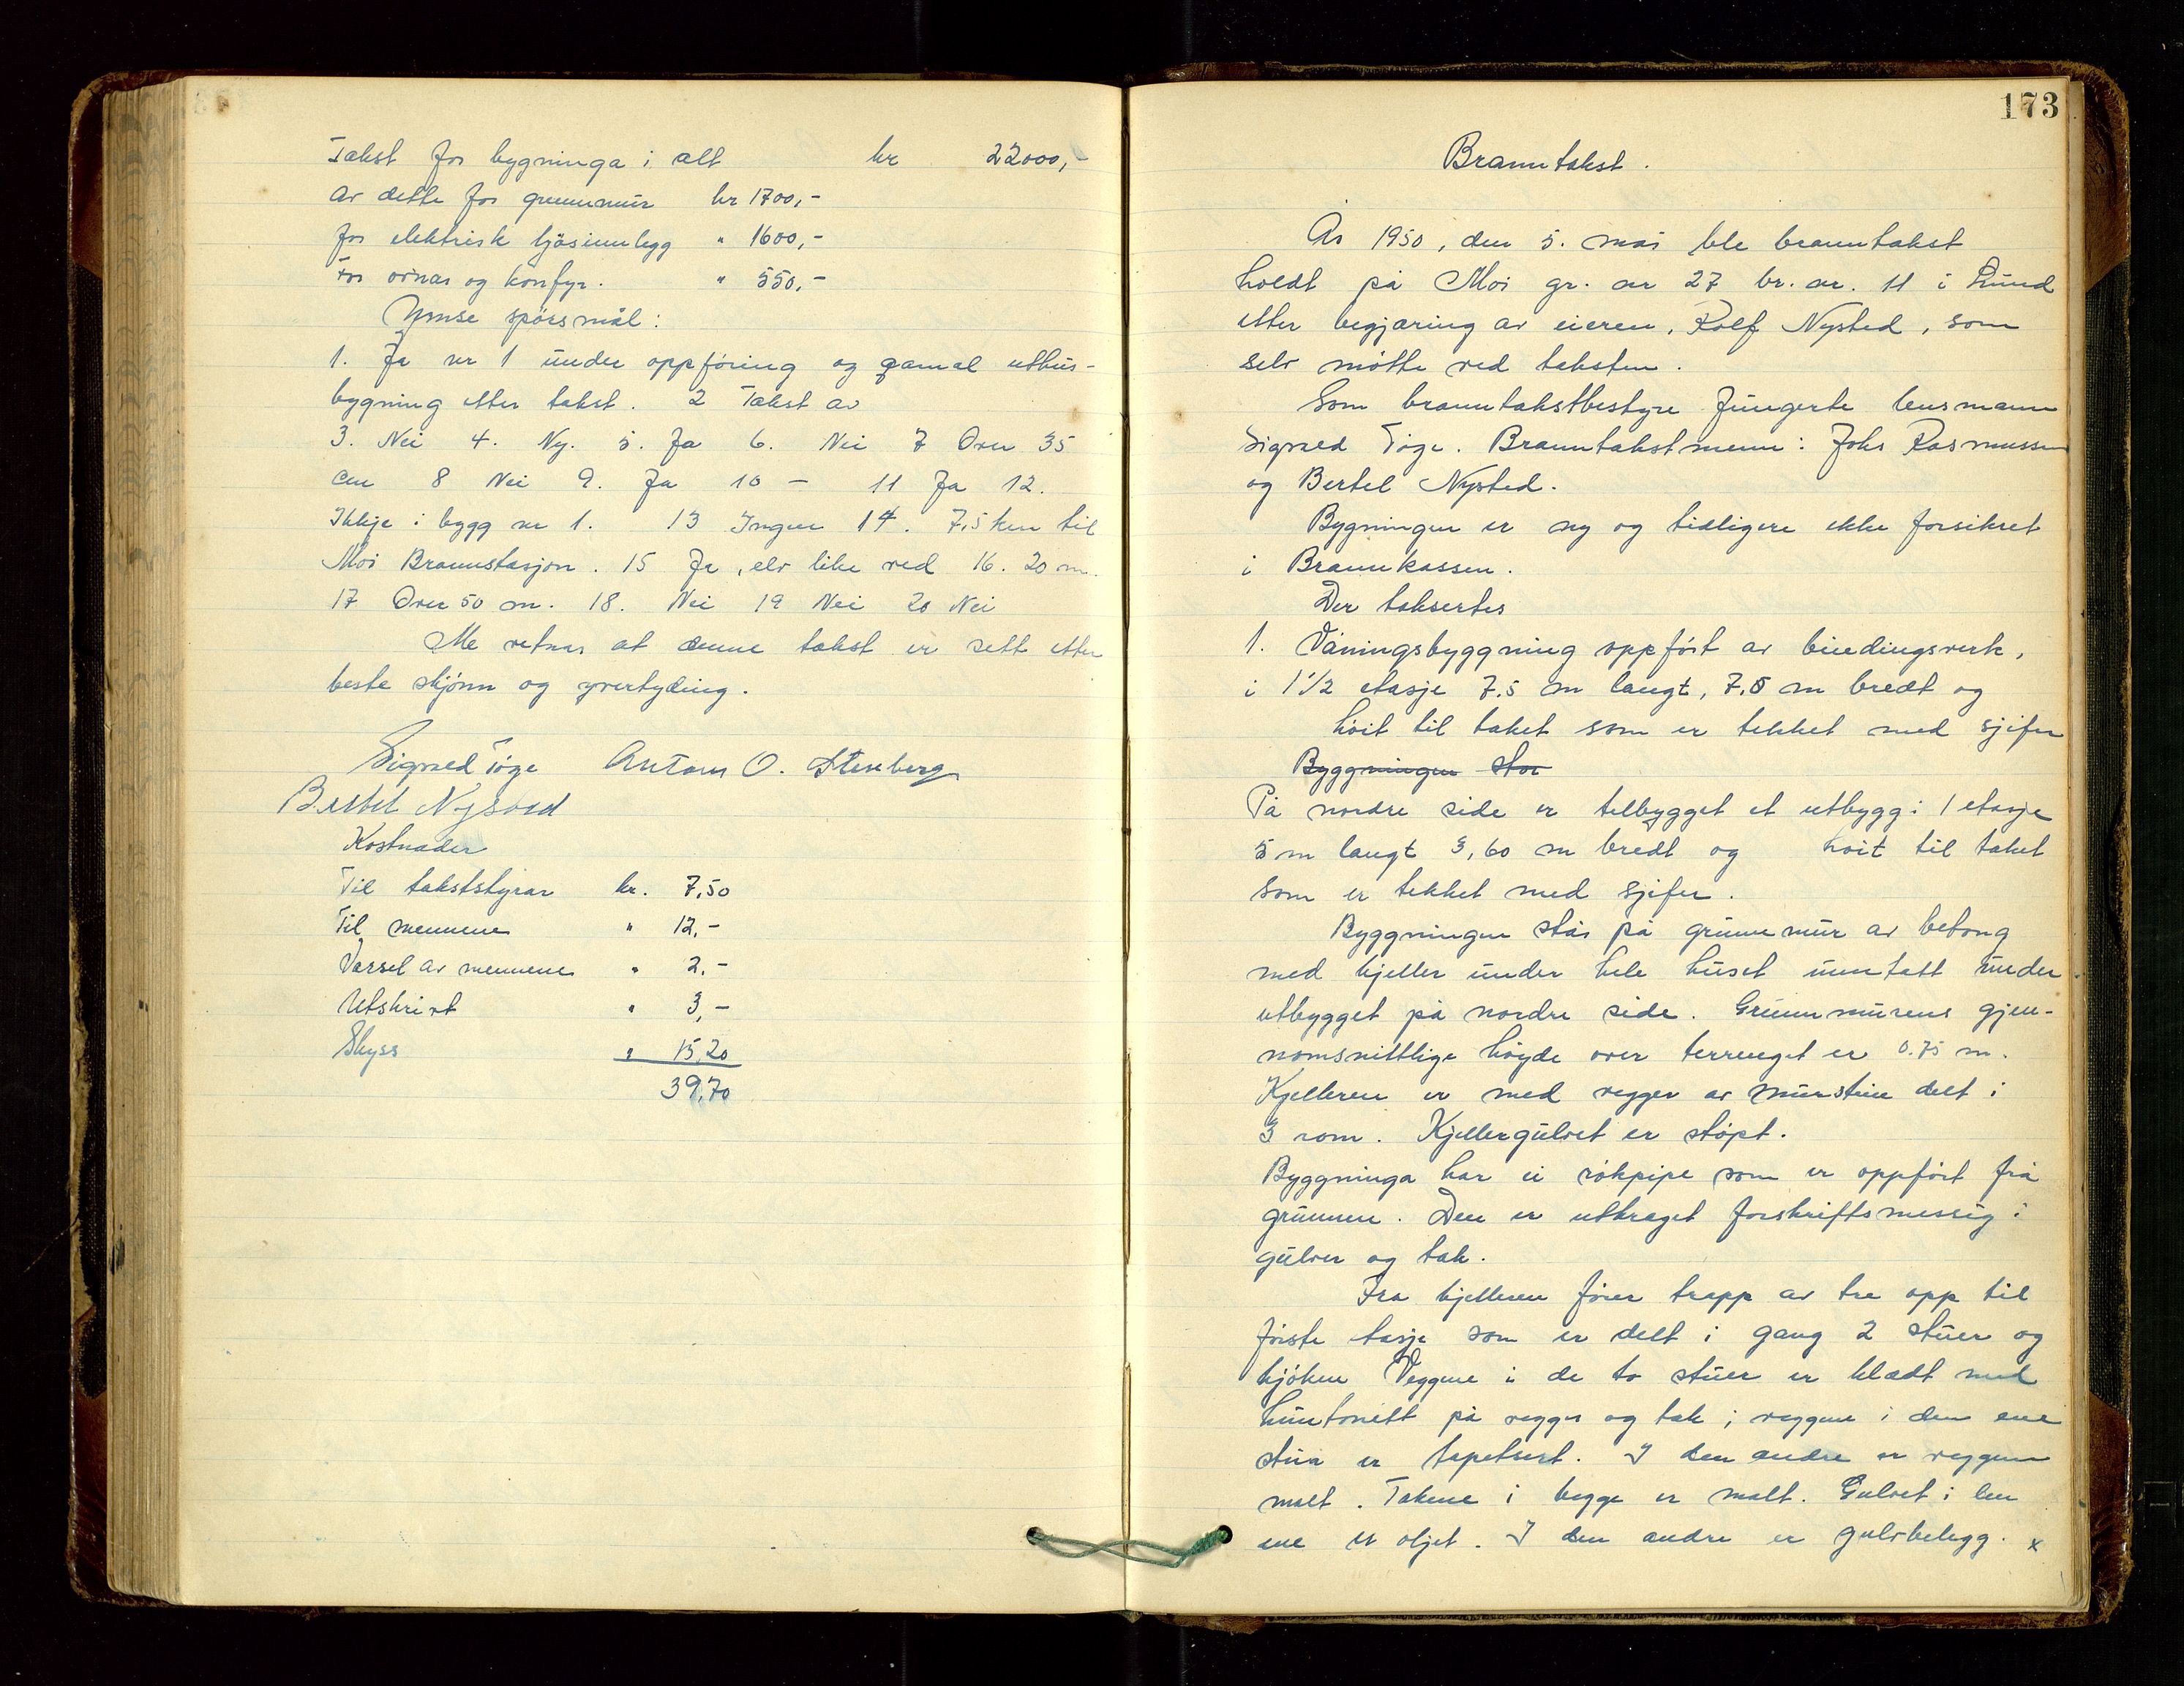 Takst for bygninga i alt kr 22000,-
av dette for grunnmur kr 1700,-
for elektrisk ljosinnlegg " 1600,-
For ovnar og komfyr. " 550,-
Ymse spörsmål:
1. Ja nr 1 under oppföring og gamal uthus-
bygning etter takst. 2 Takst av
3. Nei 4. Ny. 5. Ja 6. Nei 7 Over 35
cm 8 Nei 9. Ja 10 - 11 Ja 12.
Ikkje i bygg nr 1. 13 Ingen 14. 7,5 km til
Moi Brannstasjon. 15 Ja, elv like ved 16. 20 m.
17 Over 50 m. 18. Nei 19 Nei 20 Nei
Me vetnar at denne takst er sett etter
beste skjönn og yvertyding.
Sigvald Töge Antom O. Stenberg
Bertel Nysted
Kostnader
Til takststyrar kr. 7,50
Til mennene " 12,-
Varsel av mennene " 2,-
Utskrivt " 3,-
Skyss " 15,20
39,70
173
Branntakst.
År 1950, den 5. mai ble branntakst
holdt på Moi gr. nr 27 br. nr. 11 i Lund
etter begjæring av eieren, Rolf Nysted, som
selv mötte ved taksten.
Som branntakstbestyre fungerte lensmann
Sigvald Töge. Branntakstmenn: Johs Rasmussen
og Bertel Nysted.
Bygningen er ny og tidligere ikke forsikret
i Brannkassen.
Der taksertes
1. Våningsbyggning oppfört av bindingsverk,
i 1 1/2 etasje 7,5 m langt, 7,5 m bredt og
höit til taket som er tekket med sjifer
Byggningen stor
På nordre side er tilbygget et utbygg i 1 etasje
5 m langt 3,60 m bredt og höit til taket
som er tekket med sjifer.
Byggningen står på grunnmur av betong
med kjeller under hele huset unntatt under
utbygget på nordre side. Grunnmurens gjen-
nomsnittlige höyde over terrenget er 0.75 m.
Kjelleren er med vegger av murstein delt i
3 rom. Kjellergulvet er stöpt.
Byggninga har ei rökpipe som er oppfört frå
grunnen. Den er utkraget forskriftsmessig i
gulver og tak.
Fra kjelleren förer trapp av tre opp til
förste tasje som er delt i gang 2 stuer og
kjöken Veggene i de to stuer er kledt med
huntonitt på vegger og tak; veggene i den ene
stua er tapetsert. I den andre er veggene
malt. Takene i begge er malt. Gulvet i den
ene er oljet. I den andre er gulvbelegg. x